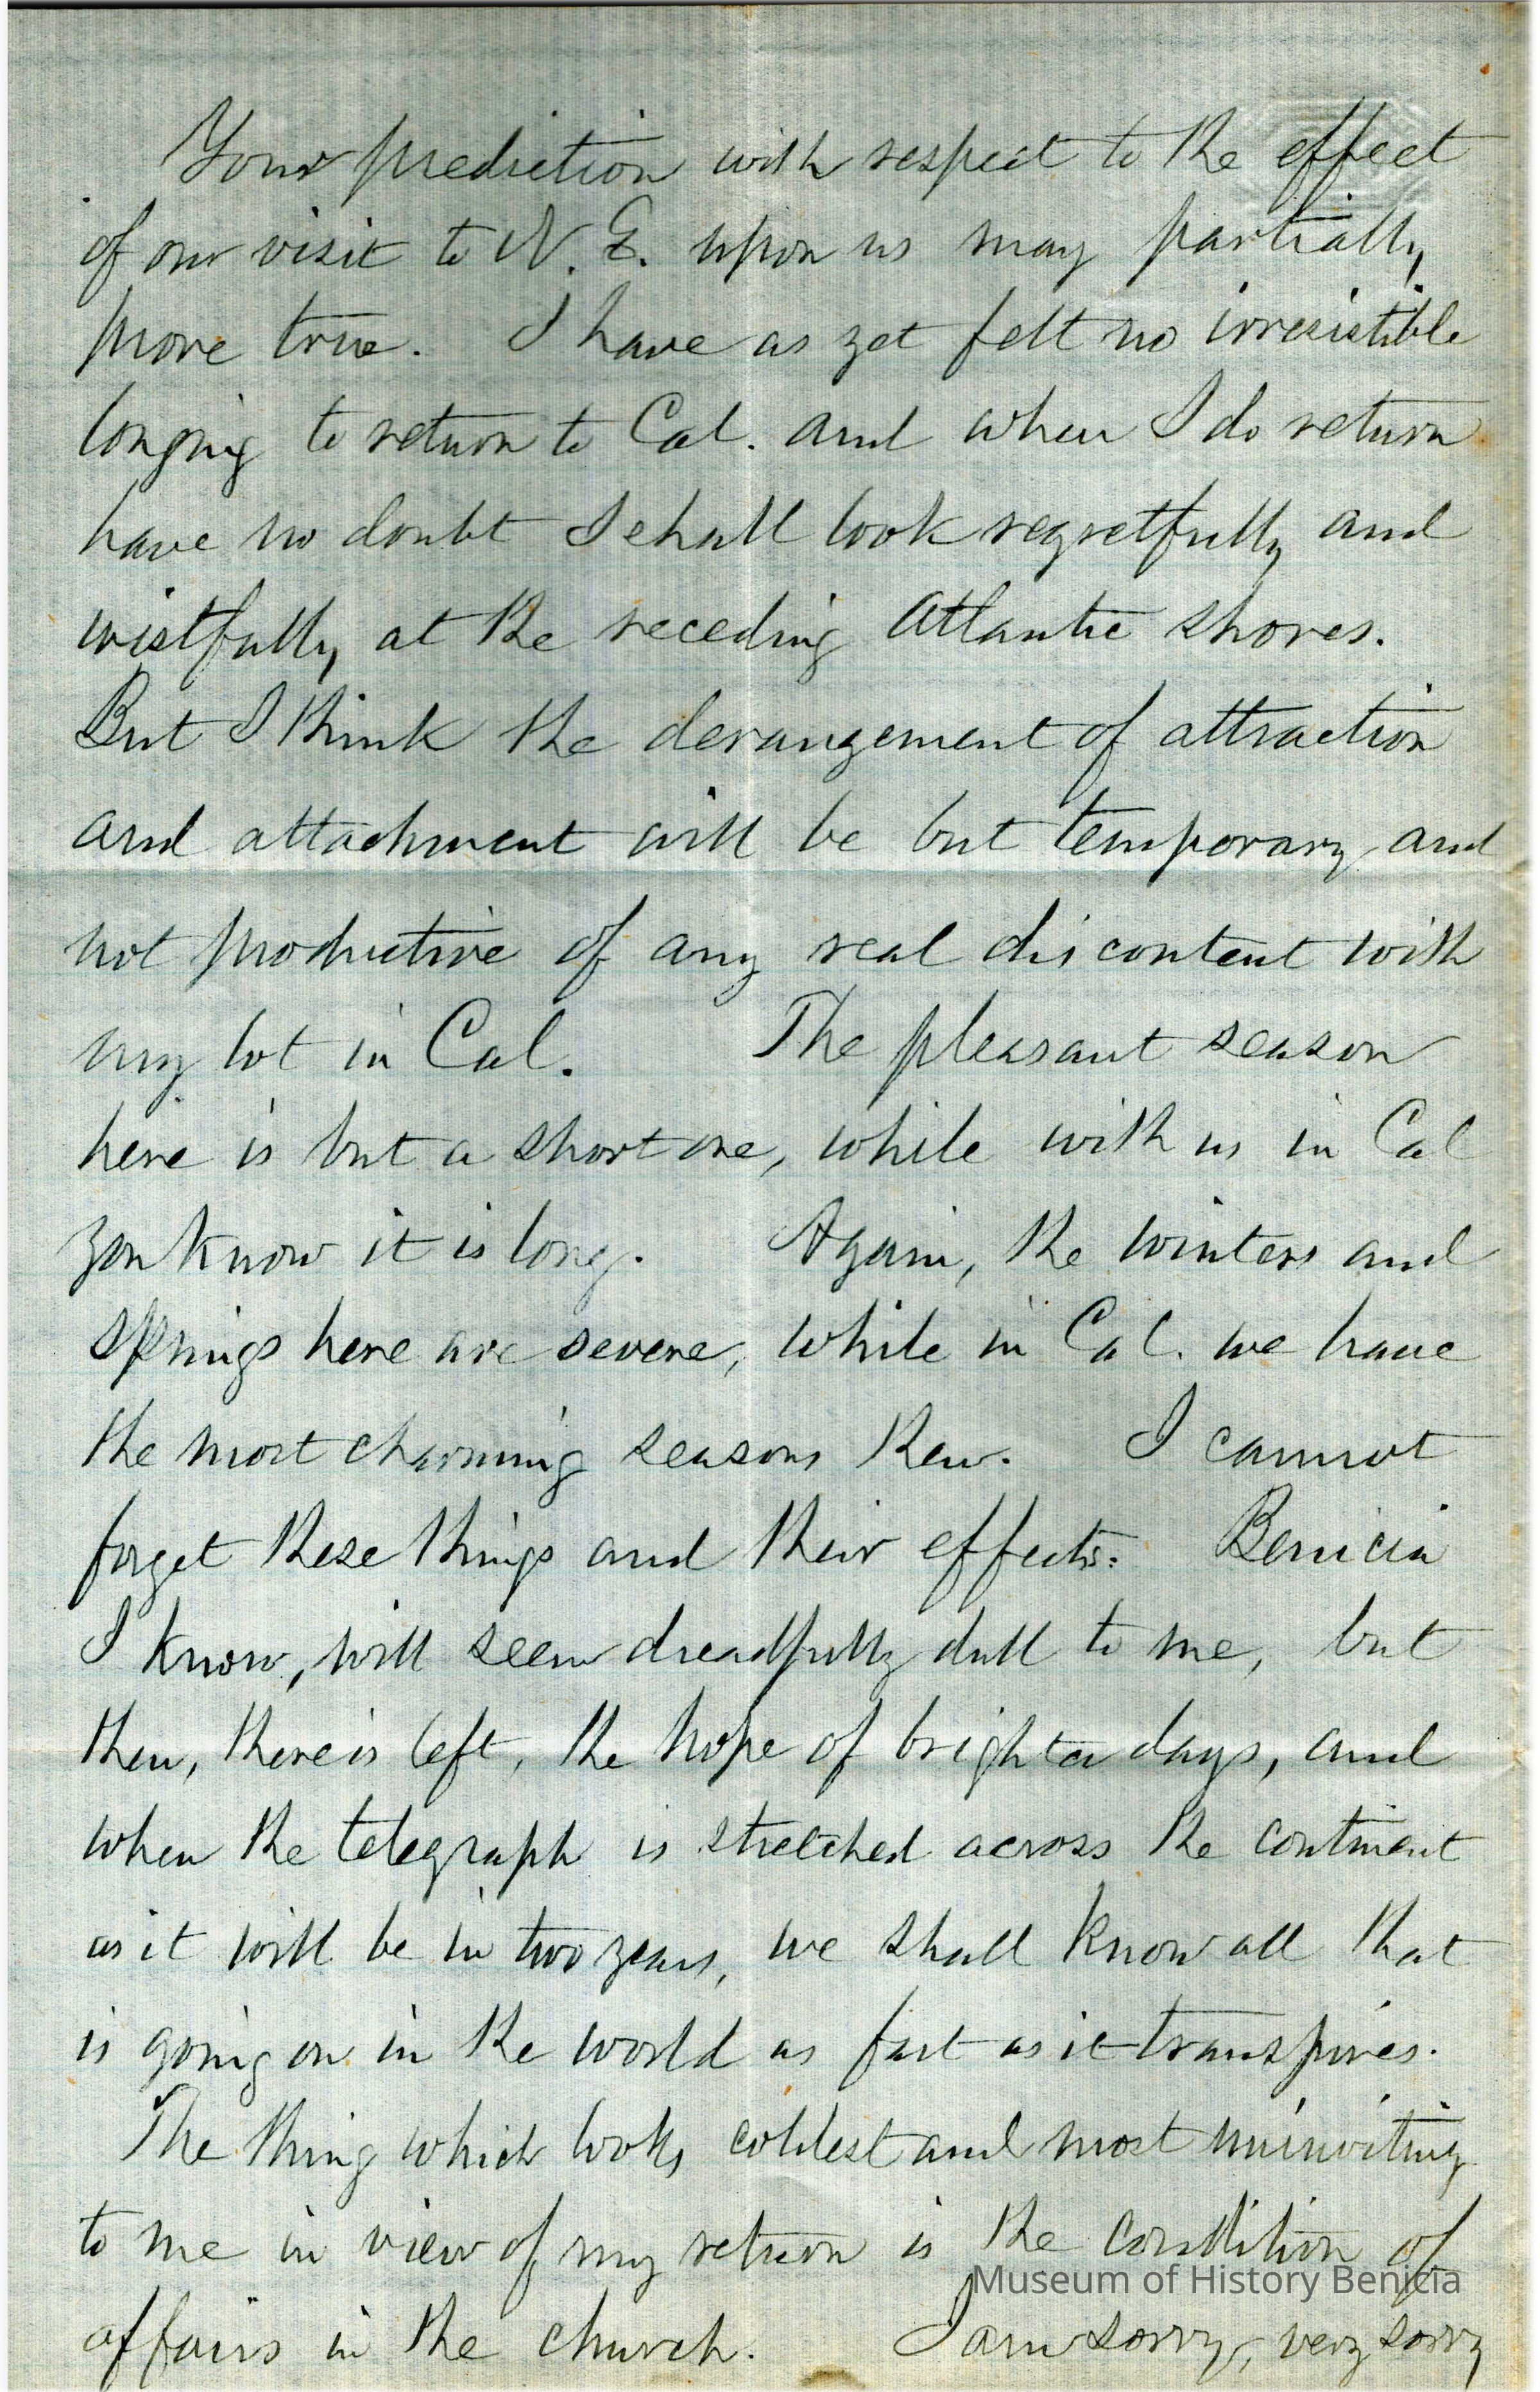 Your prediction with respect to the effect
of our visit to N. E. upon us may partially
prove true. I have as yet felt no irresistible
longing to return to Cal. and when I do return
have no doubt I shall look regretfully and
wistfully, at the receding Atlantic shores.
But I think the derangement of attraction
and attachment will be but temporary and
not productive of any real discontent with
my lot in Cal. The pleasant season
here is but a short one, while with us in Cal
you know it is long. Again, the winters and
springs here are severe, while in Cal. we have
the most charming seasons then. I cannot
forget these things and their effects. Benicia
I know, will seem dreadfully dull to me, but
then, there is left, the hope of brighter days, and
when the telegraph is stretched across the continent
as it will be in two years, we shall know all that
is going on in the world as fast as it transpires.
The thing which looks coldest and most uninviting
to me in view of my return is the condition of
Museum of History Benicia
affairs in the church. I am sorry, very sorry